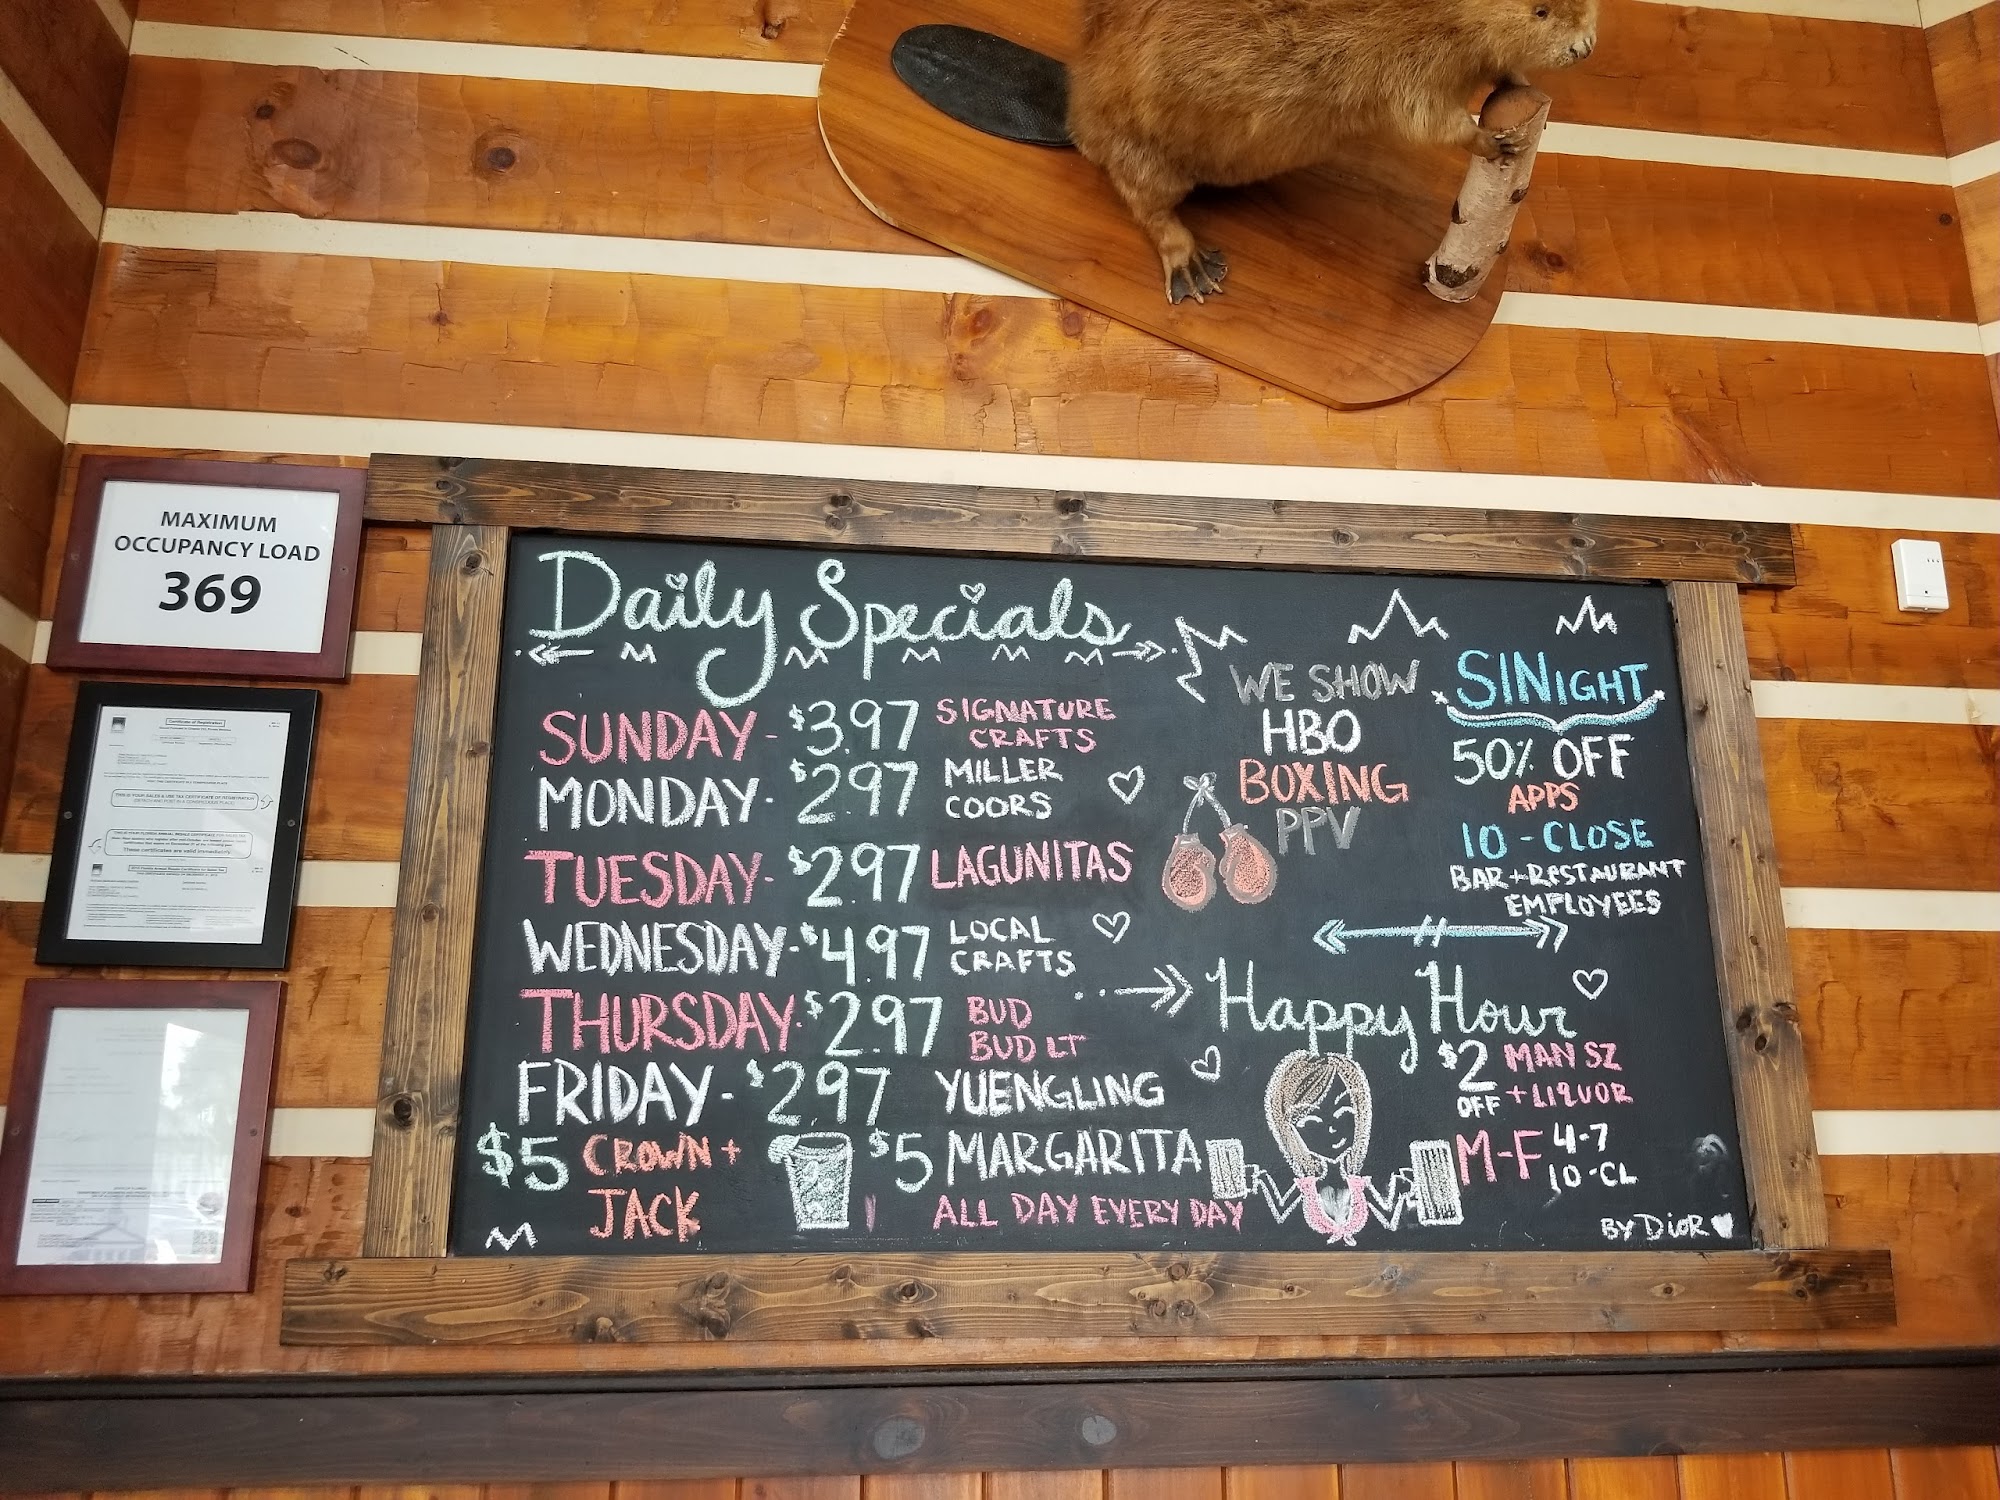 MAXIMUM
OCCUPANCY LOAD
369
Certificate of Registration
THIS IS YOUR SALES & USE TAX CERTIFICATE OF REGISTRATION
These certificates are valid immediately.
Daily Specials
SUNDAY - $3.97 SIGNATURE
CRAFTS
MONDAY - $2.97 MILLER
COORS
TUESDAY - $2.97 LAGUNITAS
WEDNESDAY - $4.97 LOCAL
CRAFTS
THURSDAY - $2.97 BUD
BUD LT
FRIDAY - $2.97 YUENGLING
$5 CROWN +
JACK
$5 MARGARITA
ALL DAY EVERY DAY
WE SHOW
HBO
BOXING
PPV
SINIGHT
50% OFF
APPS
10 - CLOSE
BAR + RESTAURANT
EMPLOYEES
Happy Hour
$2 MAN SZ
OFF + LIQUOR
M-F 4-7
10-CL
BY DIOR